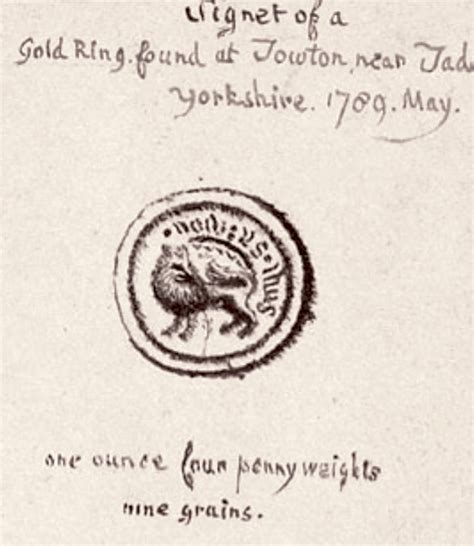 Signet of a
Gold Ring. found at Towton, near Tad
Yorkshire. 1789. May.
one ounce four pennyweights
nine grains.